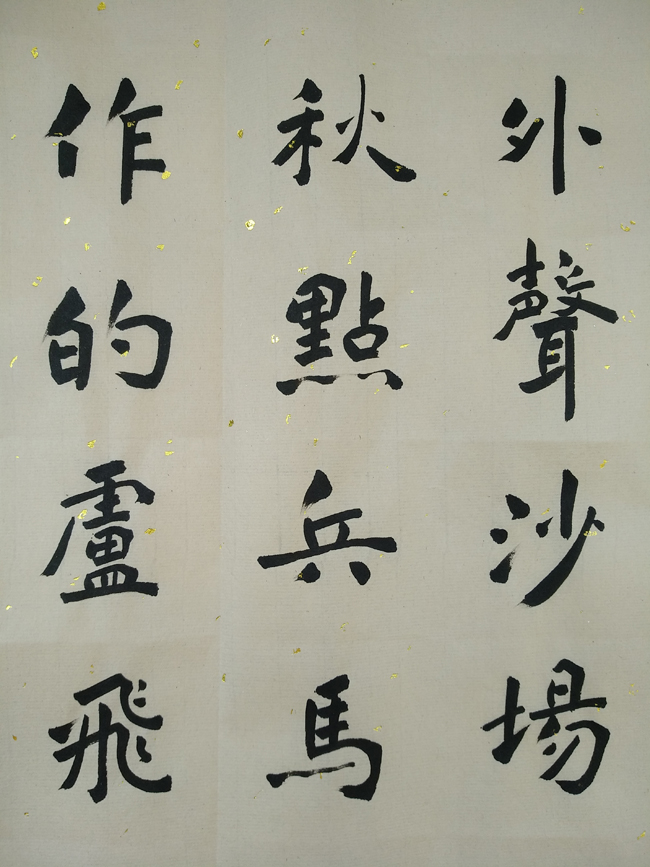 外聲沙場
秋點兵馬
作的盧飛